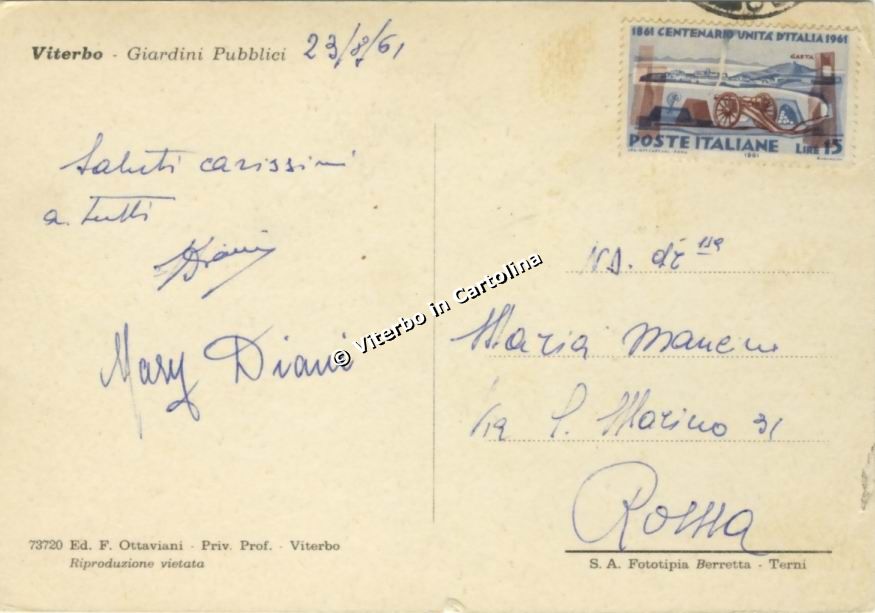 Viterbo - Giardini Pubblici 23/8/61
Saluti carissimi
a tutti
Diani
Mary Diani
© Viterbo in Cartolina
73720 Ed. F. Ottaviani - Priv. Prof. - Viterbo
Riproduzione vietata
1861 CENTENARIO UNITÀ D'ITALIA 1961
GAETA
POSTE ITALIANE
LIRE 15
1961
N.D.
Maria
Via S. Marino 31
Roma
S. A. Fototipia Berretta - Terni